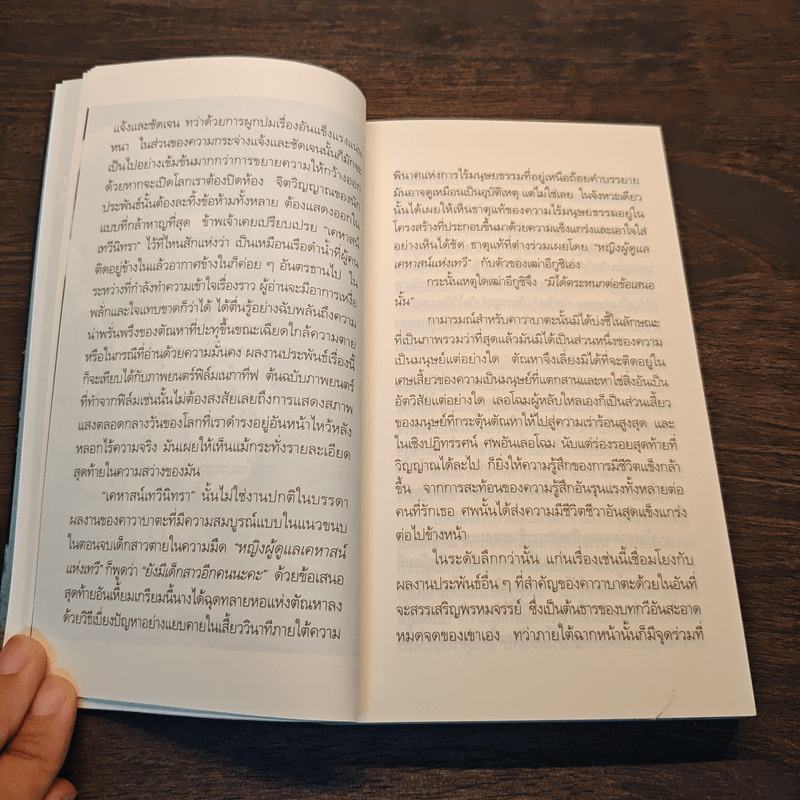 แจ้งและชัดเจน ทว่าด้วยการผูกปมเรื่องอันแข็งแรงแน่น
หนา ในส่วนของความกระจ่างแจ้งและชัดเจนนั้นก็มักจะ
เป็นไปอย่างเข้มข้นมากกว่าการขยายความให้กว้างออก
ด้วยหากจะเปิดโลกเราต้องปิดห้อง จิตวิญญาณของนัก
ประพันธ์นั้นต้องละทิ้งข้อห้ามทั้งหลาย ต้องแสดงออกใน
แบบที่กล้าหาญที่สุด ข้าพเจ้าเคยเปรียบเปรย “เคหาสน์
เทวีนิทรา” ไว้ที่ไหนสักแห่งว่า เป็นเหมือนเรือดำน้ำที่ผู้คน
ติดอยู่ข้างในแล้วอากาศข้างในก็ค่อย ๆ อันตรธานไป ใน
ระหว่างที่กำลังทำความเข้าใจเรื่องราว ผู้อ่านจะมีอาการเหงื่อ
พลั่กและใจแทบขาดก็ว่าได้ ได้ตื่นรู้อย่างฉับพลันถึงความ
น่าพรั่นพรึงของตัณหาที่ปะทุขึ้นขณะเฉียดใกล้ความตาย
หรือในกรณีที่อ่านด้วยความมั่นคง ผลงานประพันธ์เรื่องนี้
ก็จะเทียบได้กับภาพยนตร์ฟิล์มเนกาทีฟ ต้นฉบับภาพยนตร์
ที่ทำจากฟิล์มเช่นนั้นไม่ต้องสงสัยเลยถึงการแสดงสภาพ
แสงตลอดกลางวันของโลกที่เราดำรงอยู่อันหน้าไหว้หลัง
หลอกไร้ความจริง มันเผยให้เห็นแม้กระทั่งรายละเอียด
สุดท้ายในความสว่างของมัน
“เคหาสน์เทวีนิทรา” นั้นไม่ใช่งานปกติในบรรดา
ผลงานของคาวาบาตะที่มีความสมบูรณ์แบบในแนวขนบ
ในตอนจบเด็กสาวตายในความมืด “หญิงผู้ดูแลเคหาสน์
แห่งเทวี” ก็พูดว่า “ยังมีเด็กสาวอีกคนนะคะ” ด้วยข้อเสนอ
สุดท้ายอันเหี้ยมเกรียมนี้นางได้ฉุดทลายหอแห่งตัณหาลง
ด้วยวิธีเบี่ยงปัญหาอย่างแยบคายในเสี้ยววินาทีภายใต้ความ
พินาศแห่งการไร้มนุษยธรรมที่อยู่เหนือถ้อยคำบรรยาย
มันอาจดูเหมือนเป็นอุบัติเหตุ แต่ไม่ใช่เลย ในจังหวะเดียว
นั้นได้เผยให้เห็นธาตุแท้ของความไร้มนุษยธรรมอยู่ใน
โครงสร้างที่ประกอบขึ้นมาด้วยความแข็งแกร่งและเอาใจใส่
อย่างเห็นได้ชัด ธาตุแท้ที่ต่างร่วมเผยโดย “หญิงผู้ดูแล
เคหาสน์แห่งเทวี” กับตัวของเฒ่าอีกูชิเอง
กระนั้นเหตุใดเฒ่าอีกูชิจึง “มิได้ตระหนกต่อข้อเสนอ
นั้น”
กามารมณ์สำหรับคาวาบาตะนั้นมิได้บ่งชี้ในลักษณะ
ที่เป็นภาพรวมว่าที่สุดแล้วมันมิได้เป็นส่วนหนึ่งของความ
เป็นมนุษย์แต่อย่างใด ตัณหาจึงเลี่ยงมิได้ที่จะติดอยู่ใน
เศษเสี้ยวของความเป็นมนุษย์ที่แตกสานและหาใช่สิ่งอันเป็น
อัตวิสัยแต่อย่างใด เลอโฉมผู้หลับใหลเองก็เป็นส่วนเสี้ยว
ของมนุษย์ที่กระตุ้นตัณหาให้ไปสู่ความเร่าร้อนสูงสุด และ
ในเชิงปฏิทรรศน์ ศพอันเลอโฉม นับแต่ร่องรอยสุดท้ายที่
วิญญาณได้ละไป ก็ยิ่งให้ความรู้สึกของการมีชีวิตแข็งกล้า
ขึ้น จากการสะท้อนของความรู้สึกอันรุนแรงทั้งหลายต่อ
คนที่รักเธอ ศพนั้นได้ส่งความมีชีวิตชีวาอันสุดแข็งแกร่ง
ต่อไปข้างหน้า
ในระดับลึกกว่านั้น แก่นเรื่องเช่นนี้เชื่อมโยงกับ
ผลงานประพันธ์อื่น ๆ ที่สำคัญของคาวาบาตะด้วยในอันที่
จะสรรเสริญพรหมจรรย์ ซึ่งเป็นต้นธารของบทกวีอันสะอาด
หมดจดของเขาเอง ทว่าภายใต้ฉากหน้านั้นก็มีจุดร่วมที่